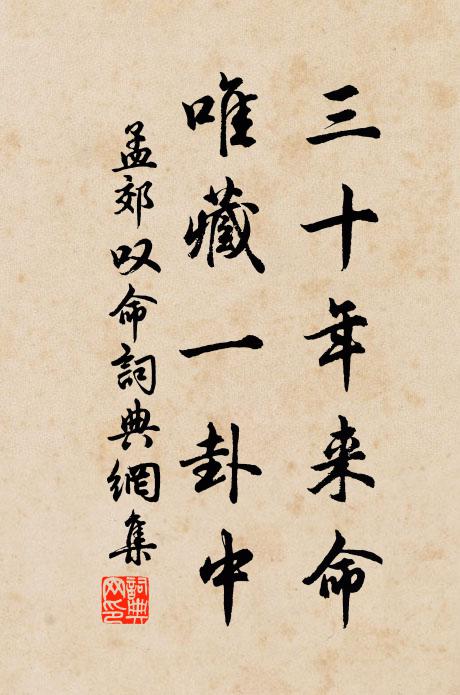 三十年来命
唯藏一卦中
孟郊叹命詞典網集
詞典網印